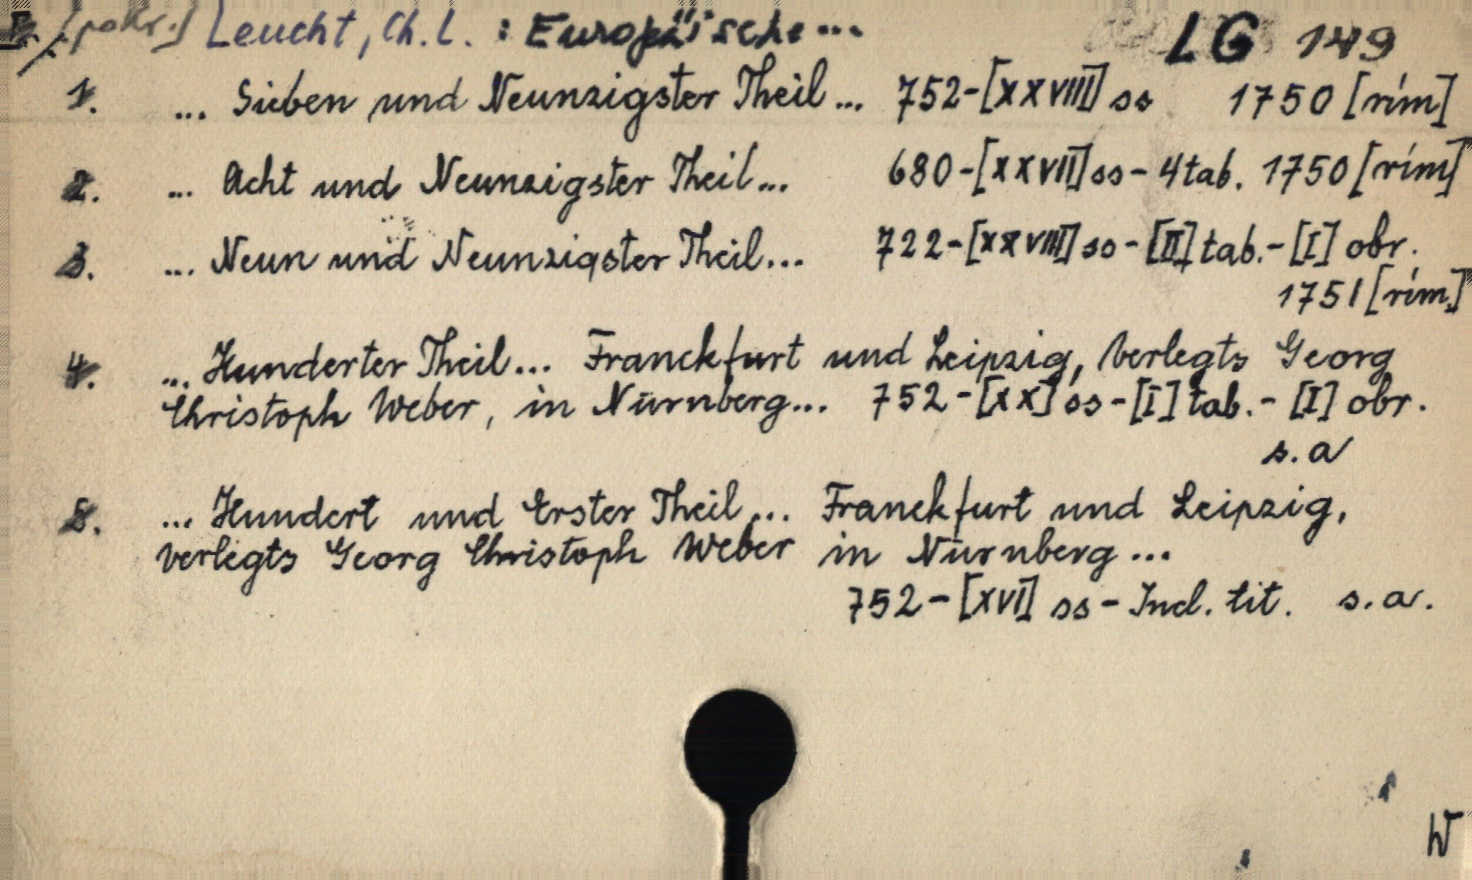 [pokr.] Leucht, Ch. L. : Europäische... LG 149
1. ... Sieben und Neunzigster Theil ... 752-[XXVIII] ss 1750 [rím]
2. ... Acht und Neunzigster Theil... 680-[XXVII] ss - 4 tab. 1750 [rím]
3. ... Neun und Neunzigster Theil... 722-[XXVIII] ss - [II] tab. - [I] obr.
1751 [rím]
4. ... Hunderter Theil... Franckfurt und Leipzig, Verlegts Georg
Christoph Weber, in Nürnberg... 752-[XX] ss - [I] tab. - [I] obr.
s. a
5. ... Hundert und Erster Theil... Franckfurt und Leipzig,
verlegts Georg Christoph Weber in Nürnberg ...
752-[XVI] ss - Incl. tit. s. a.
W